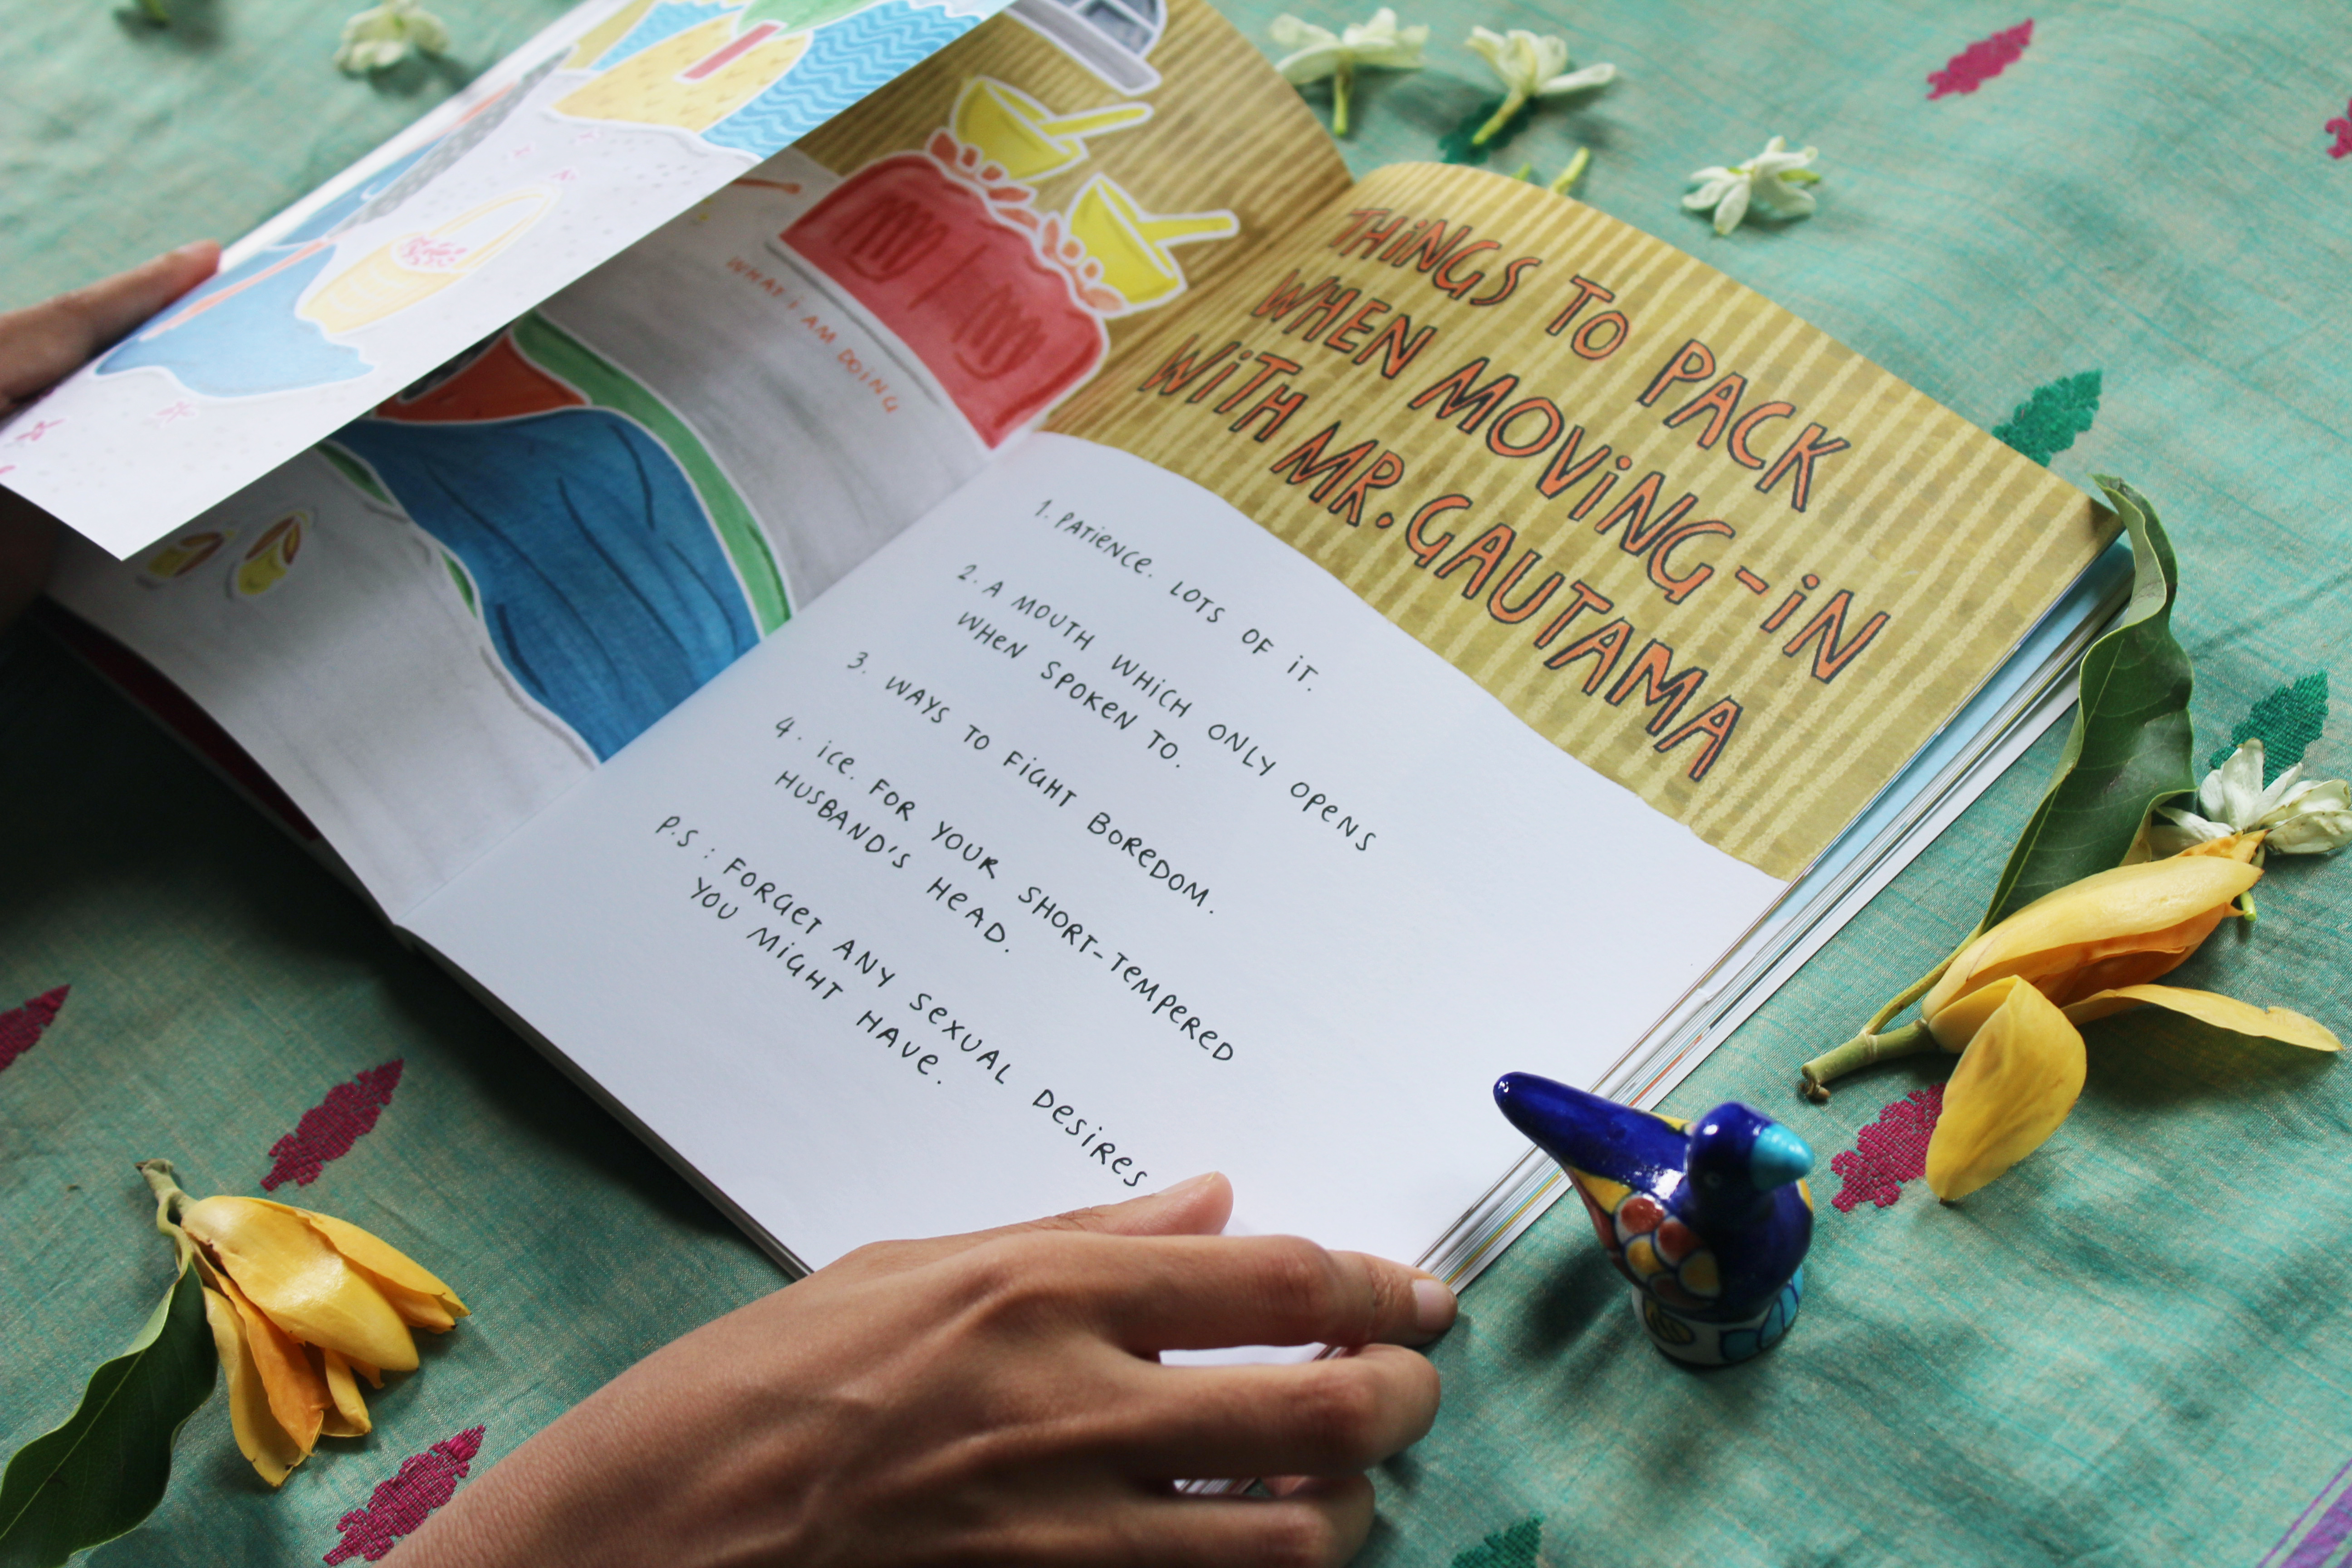 WHAT i AM DOiNG
THiNGS TO PACK
WHEN MOViNG-iN
WiTH MR. GAUTAMA
1. PATieNCe. LOTS OF iT.
2. A MOUTH WHiCH ONLY OPeNS
WHeN SPOKEN TO.
3. WAYS TO FiGHT BOReDOM.
4. iCe. FOR YOUR SHORT-TeMPeReD
HUSBAND'S HeAD.
P.S : FORGeT ANY SeXUAL DeSiReS
YOU MiGHT HAVe.